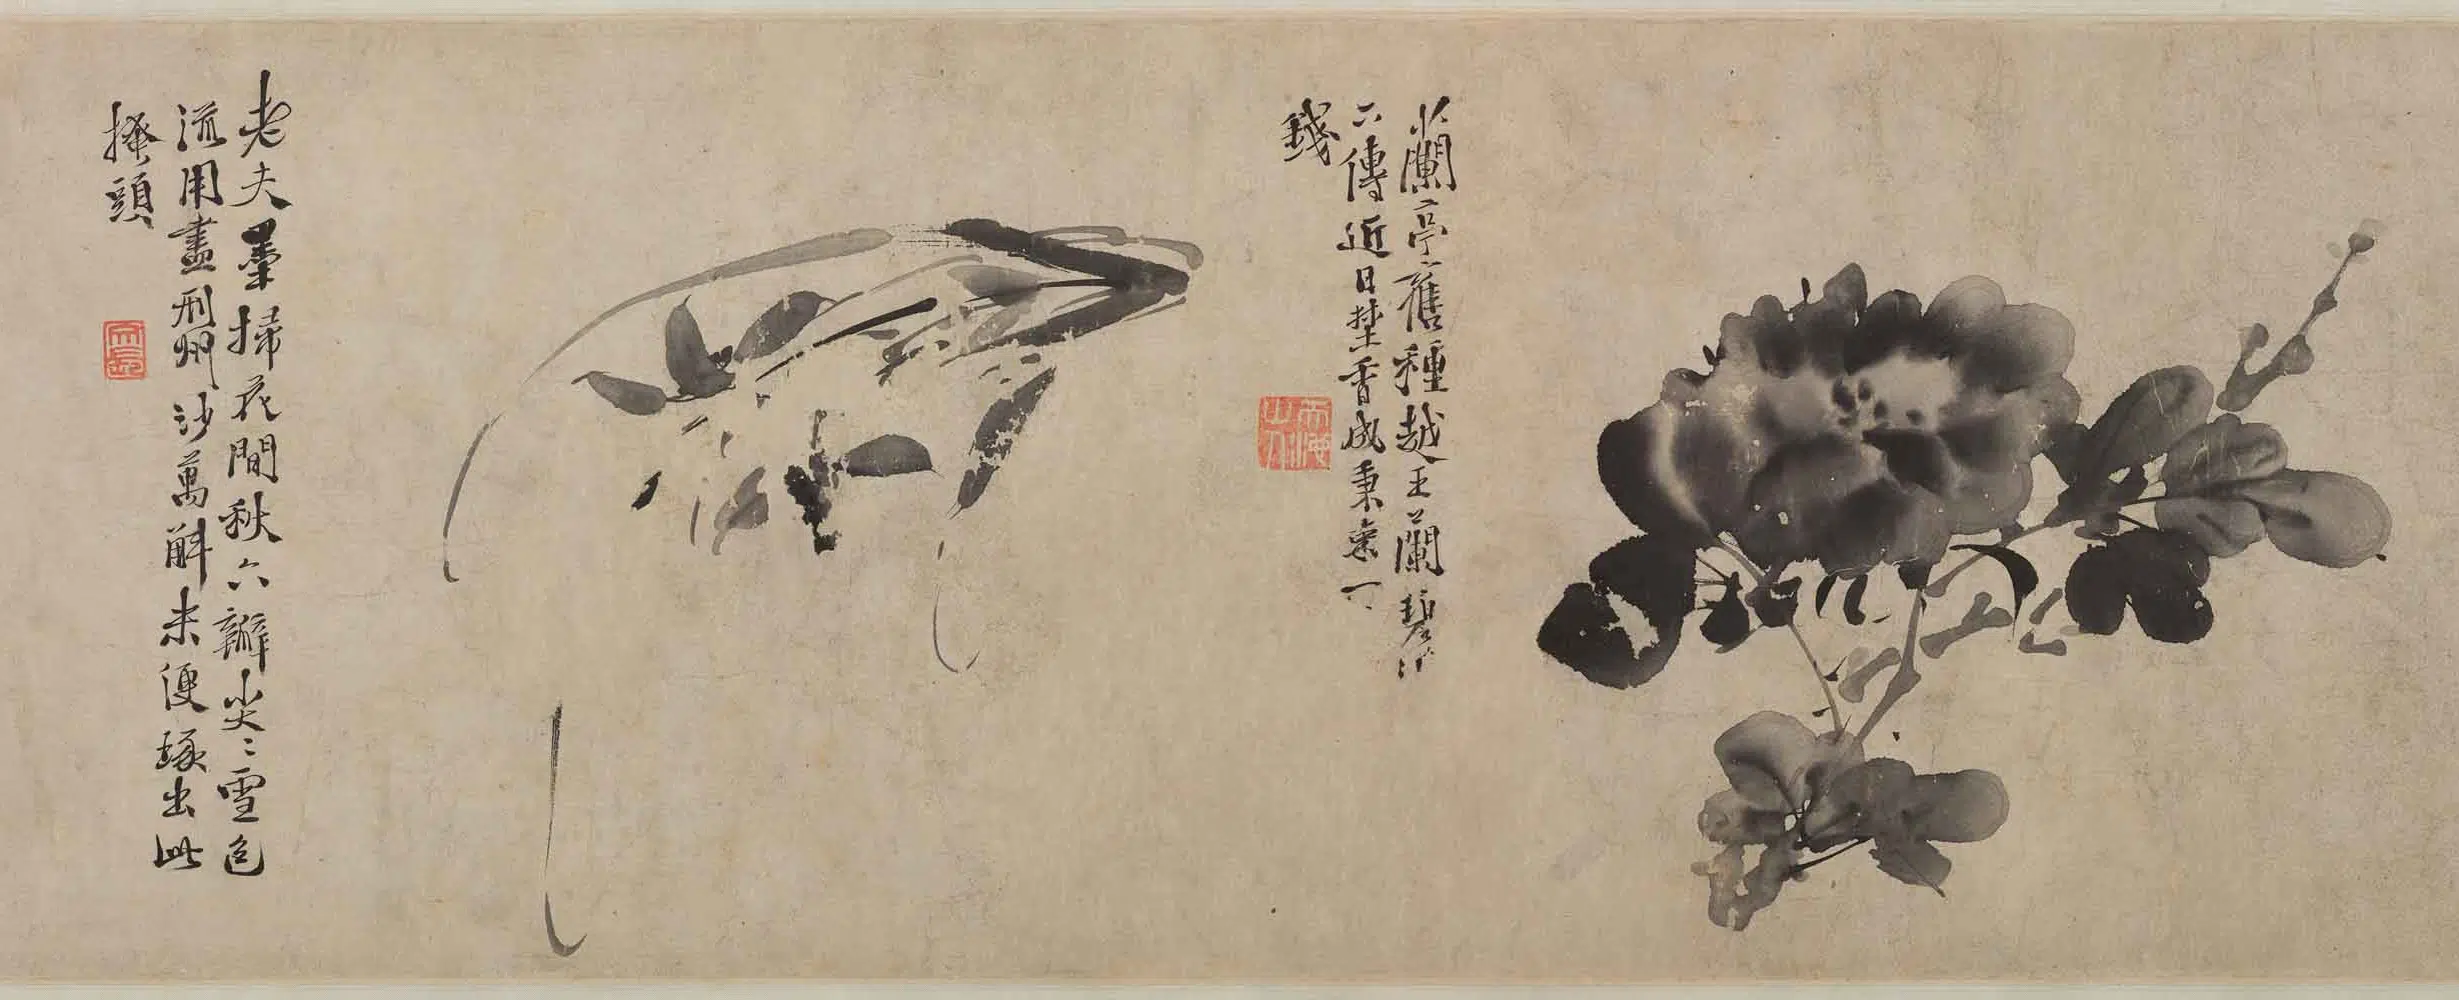 蘭亭舊種越王蘭碧浪
六傳近日埜香成秉束一
錢
老夫墨掃花間秋六瓣尖〻雪色
流用盡刑州沙萬斛未便琢出此
搔頭